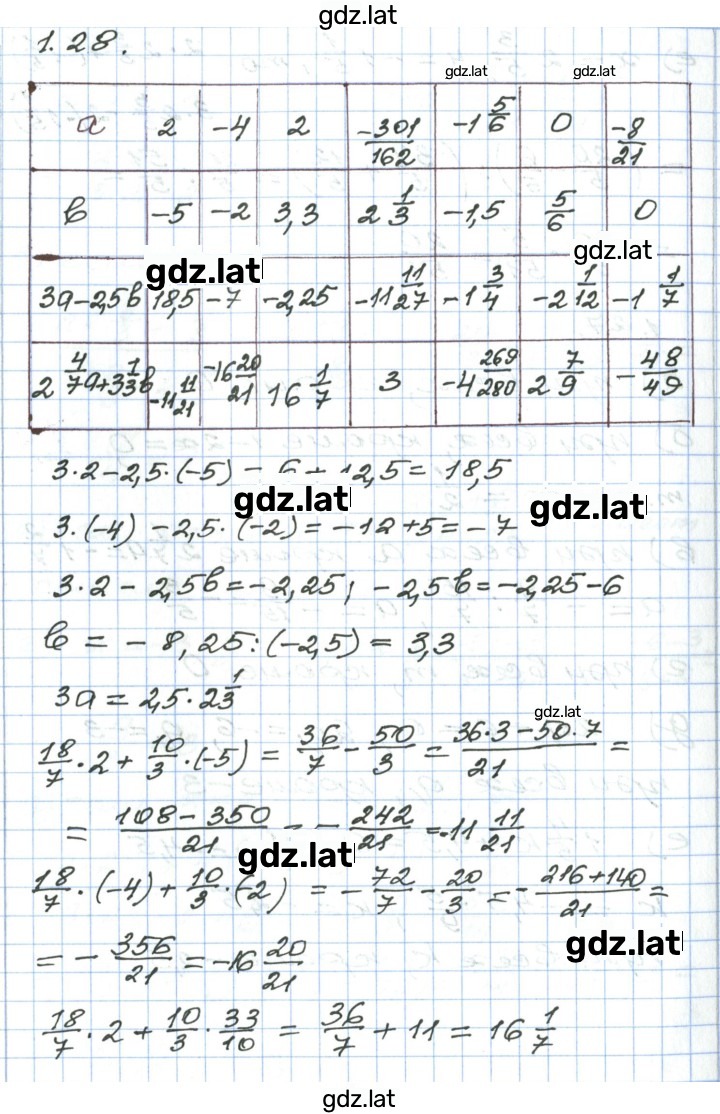 gdz.lat
1.28.
gdz.lat gdz.lat
a 2 -4 2 -301/162 -1 5/6 0 -8/21
в -5 -2 3,3 2 1/3 -1,5 5/6 0
gdz.lat gdz.lat
3a-2,5в 18,5 -7 -2,25 -11 11/27 -1 3/4 -2 1/12 -1 1/7
2 4/7 a+3 1/3 в -11 11/21 -16 20/21 16 1/7 3 -4 269/280 2 7/9 -48/49
3·2-2,5·(-5) = 6+12,5 = 18,5
gdz.lat gdz.lat
3·(-4) -2,5·(-2) = -12+5 = -7
3·2 - 2,5в = -2,25; -2,5в = -2,25-6
в = -8,25:(-2,5) = 3,3
3a = 2,5·2 1/3
gdz.lat
18/7·2 + 10/3·(-5) = 36/7 - 50/3 = 36·3-50·7/21 =
= 108-350/21 = -242/21 = -11 11/21
gdz.lat
18/7·(-4) + 10/3·(-2) = -72/7 - 20/3 = -216+140/21 =
gdz.lat
= -356/21 = -16 20/21
18/7·2 + 10/3·33/10 = 36/7 + 11 = 16 1/7
gdz.lat